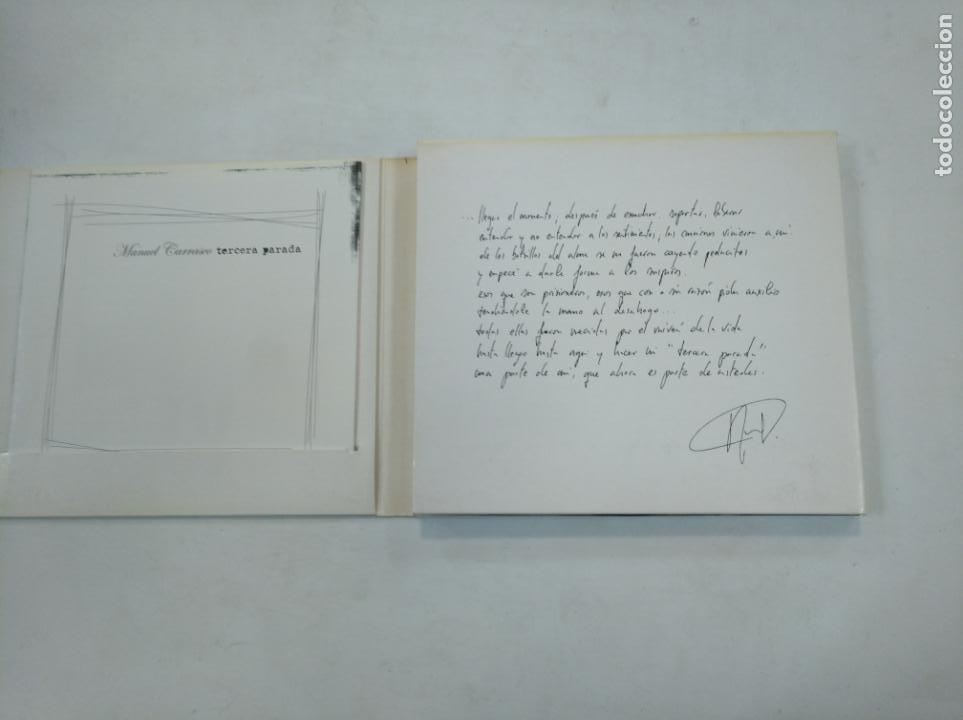 Manuel Carrasco tercera parada
... llegar el momento, después de escuchar, soportar, liberar
entender y no entender a los sentimientos, las canciones vinieron a mi
de los bolsillos del alma se me fueron cayendo pedacitos
y empecé a darle forma a los suspiros.
esos que son prisioneros, esos que con o sin razón piden auxilio
tendiéndole la mano al desahogo...
todas ellas fueron mecidas por el vaivén de la vida
hasta llegar hasta aquí y hacer mi "tercera parada"
una parte de mi, que ahora es parte de ustedes.
todocoleccion